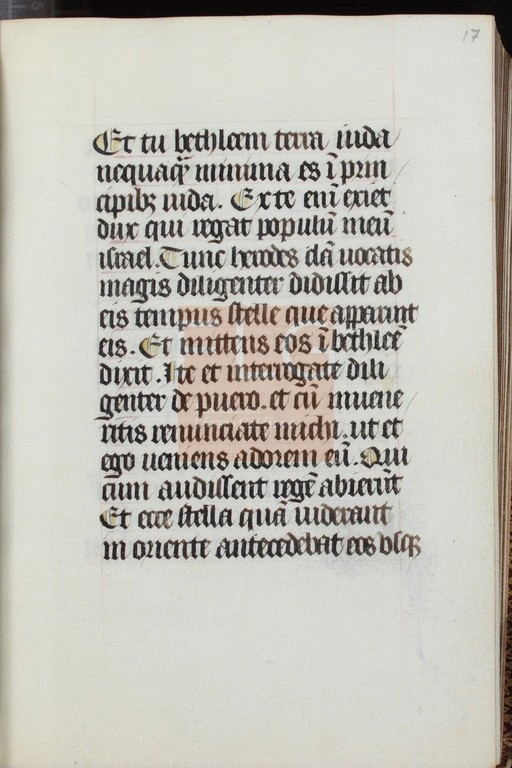 17
Et tu bethleem terra iuda
nequaqȝ minima es ī prin
cipibȝ iuda. Ex te enī exiet
dux qui regat populū meū
israel. Tunc herodes clā uocatis
magis diligenter didissit ab
eis tempus stelle que apparuit
eis. Et mittens eos ī bethleē
dixit. Ite et interrogate dili
genter de puero. et cū inuene
ritis renunciate michi. ut et
ego ueniens adorem eū. Qui
cum audissent regē abierūt
Et ecce stella quā uiderant
in oriente antecedebat eos vsqȝ